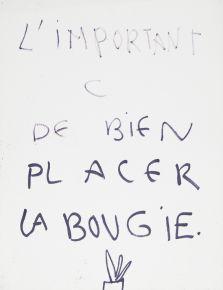 L'IMPORTANT
C
DE BIEN
PLACER
LA BOUGIE.